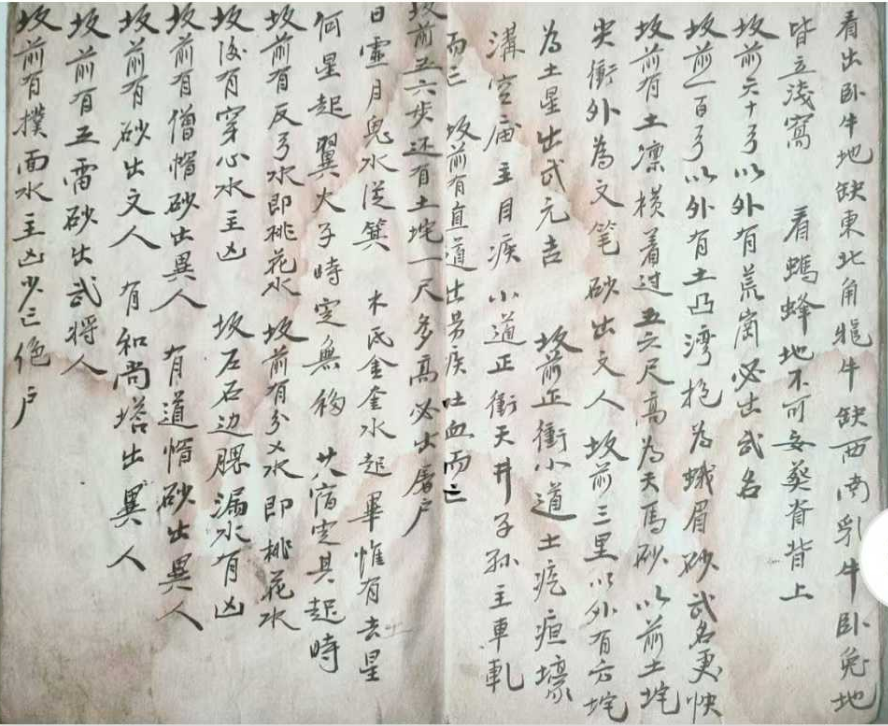 看出卧牛地缺東北角犍牛缺西南乳牛卧兔地
皆立淺窩 看螞蜂地不可妄葬脊背上
坂前六十弓以外有荒崗必出武名
坂前一百弓以外有土凸湾抱為蛾眉砂武名更快
坂前有土凛横着过五六尺高為天馬砂以前土垞
尖衝外為文笔砂出文人坂前三里以外有方垞
為土星出武元吉 坂前正衝小道土疙疸壕
溝空庙主目疾小道正衝天井子孙主車軋
而亡 坂前有直道出劳疾吐血而亡
坂前五六步还有土垞一尺多高必出屠户
日虚月鬼水从箕 木氐金奎水起畢惟有去星
何星起翼火子時定無移 廿八宿定其起時
坂前有反弓水即桃花水 坂前有分乂水即桃花水
坂後有穿心水主凶 坂左右边腮漏水有凶
坂前有僧帽砂出異人 有道惰砂出異人
坂前有砂出文人 有和尚塔出異人
坂前有五雷砂出武将人
坂前有撲面水主凶少亡绝户